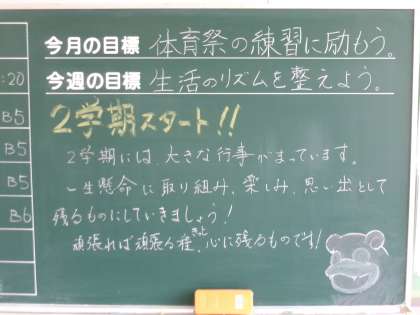 今月の目標 体育祭の練習に励もう。
今週の目標 生活のリズムを整えよう。
:20
B5
B5
B5
B6
2学期スタート!!
2学期には、大きな行事がまっています。
一生懸命に取り組み、楽しみ、思い出として
残るものにしていきましょう!
頑張れば頑張る程、きっと心に残るものです!